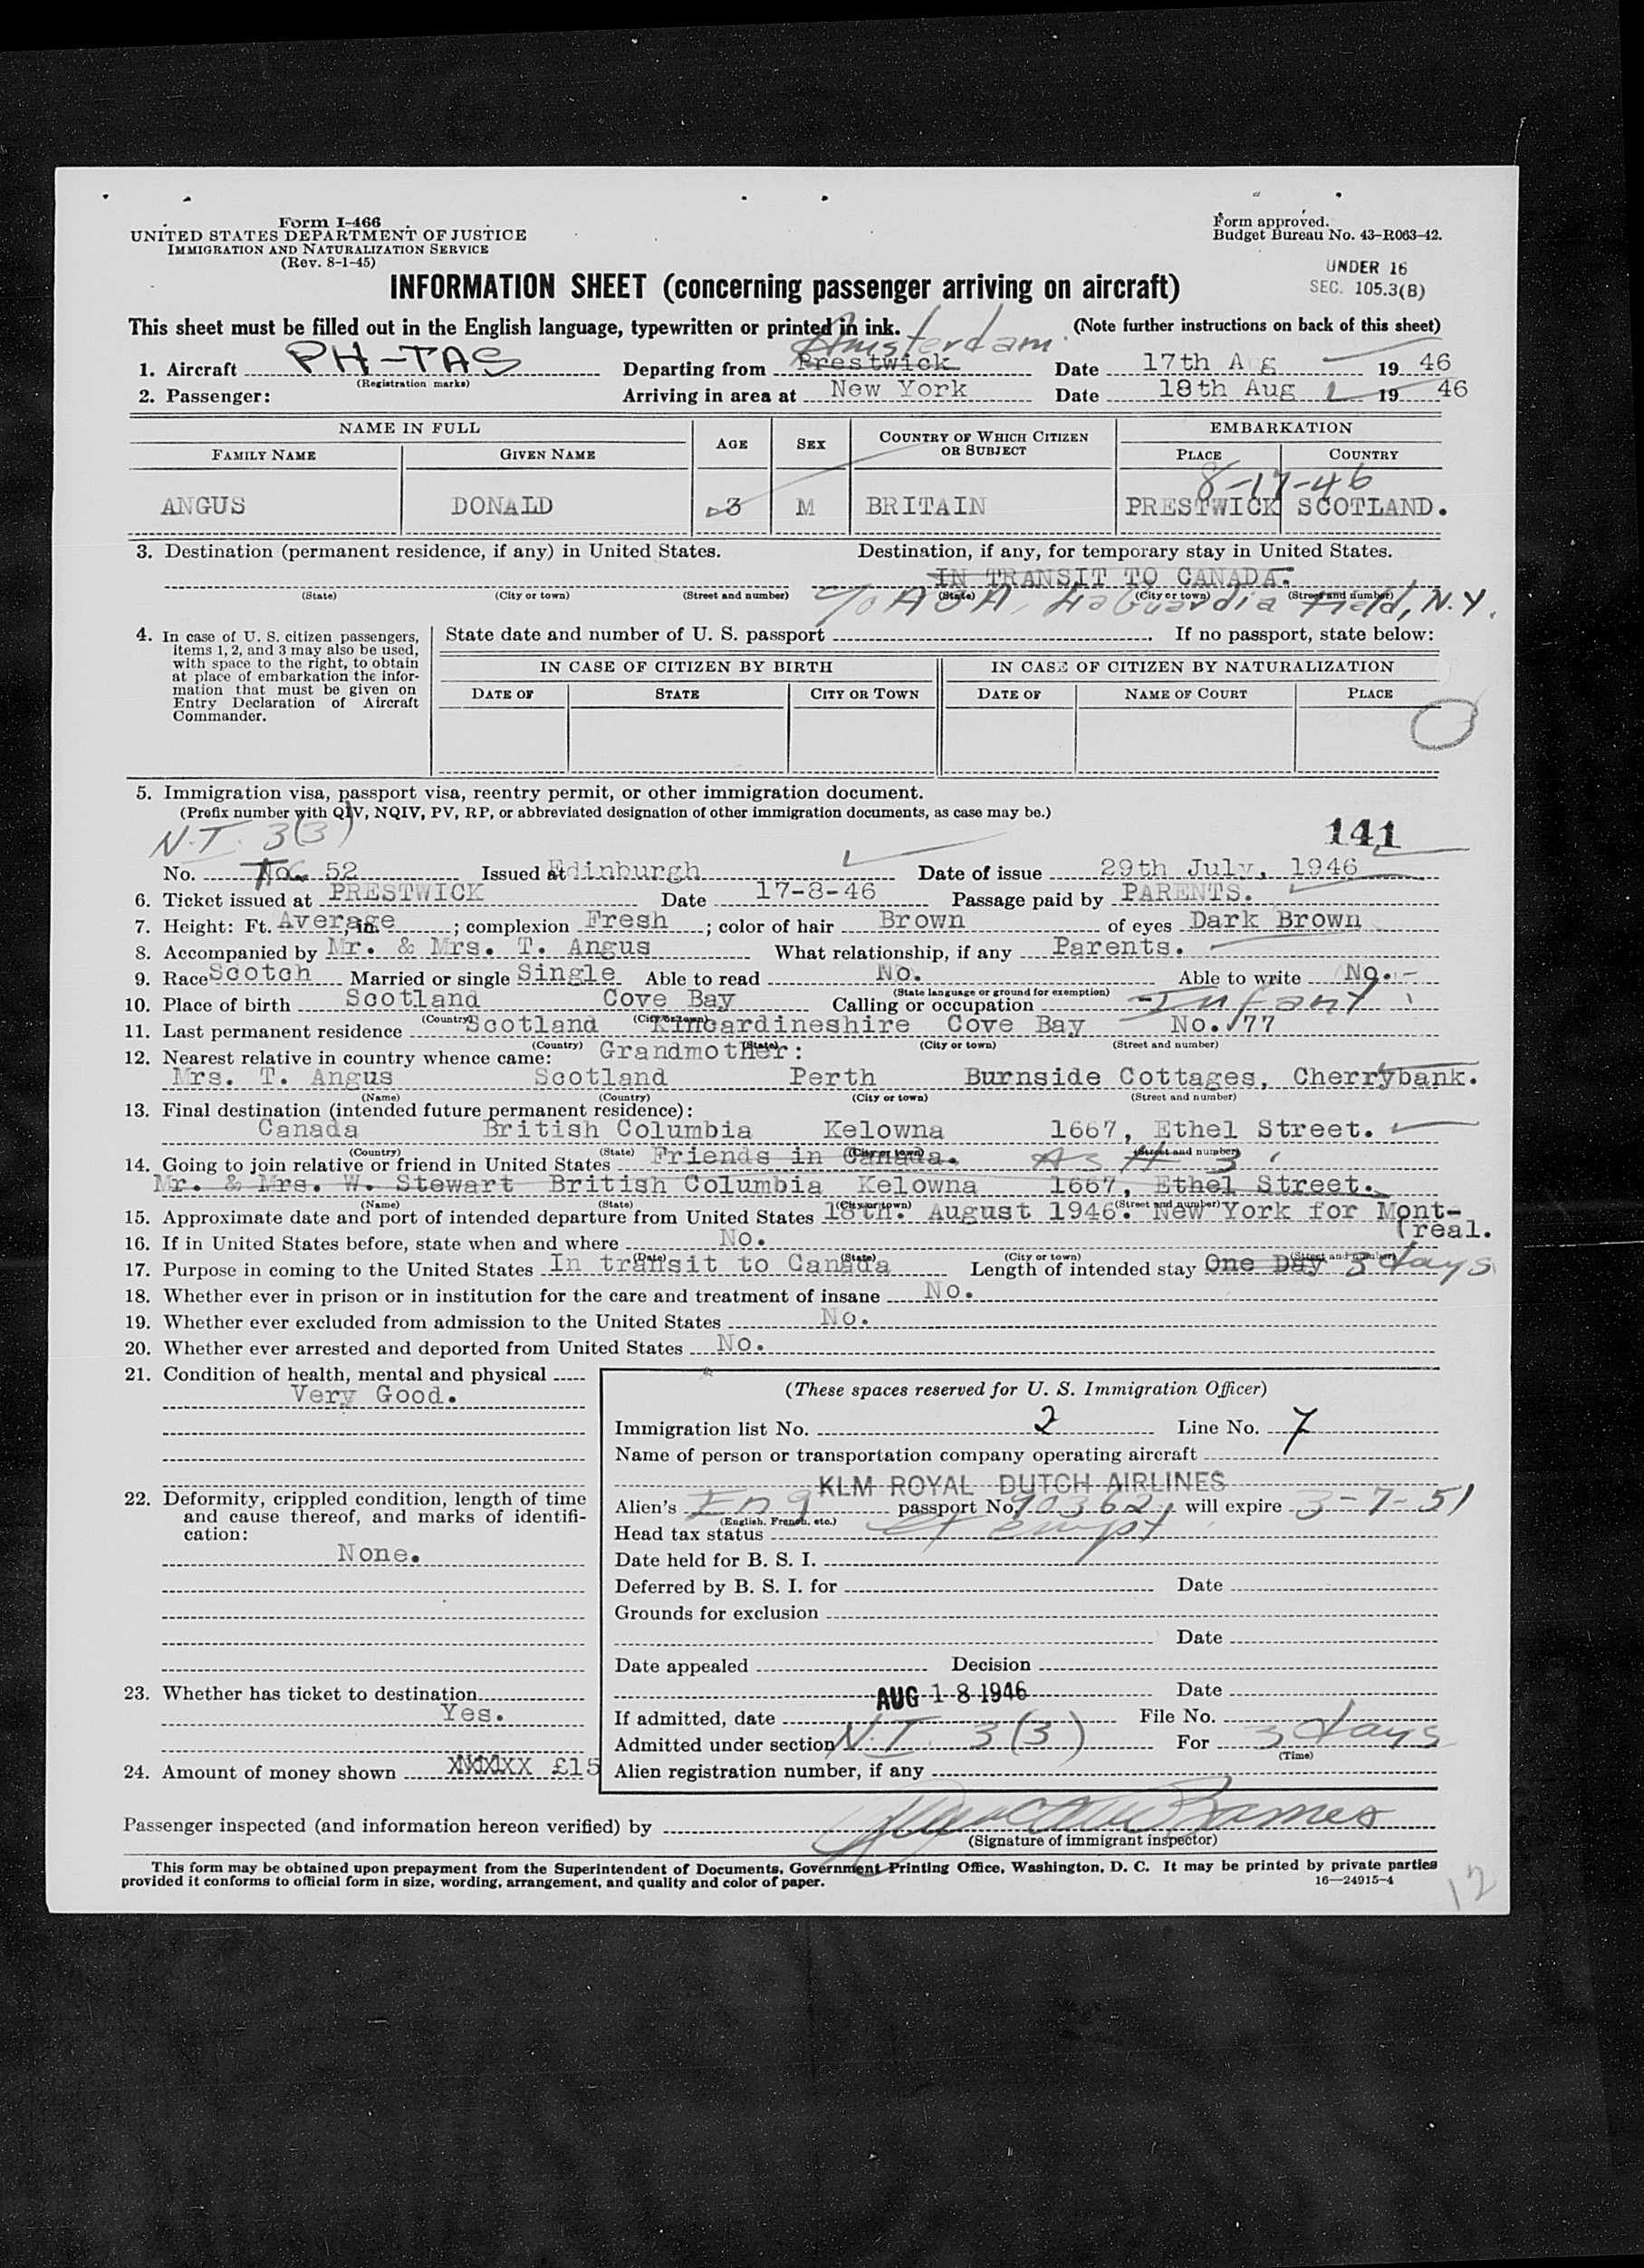 Form I-466
UNITED STATES DEPARTMENT OF JUSTICE
IMMIGRATION AND NATURALIZATION SERVICE
(Rev. 8-1-45)
Form approved.
Budget Bureau No. 43-R063-42.
UNDER 16
SEC. 105.3(B)
INFORMATION SHEET (concerning passenger arriving on aircraft)
This sheet must be filled out in the English language, typewritten or printed in ink. (Note further instructions on back of this sheet)
Amsterdam
1. Aircraft PH-TAS Departing from Prestwick Date 17th A g 19 46
(Registration marks)
2. Passenger: Arriving in area at New York Date 18th Aug 19 46
NAME IN FULL AGE SEX COUNTRY OF WHICH CITIZEN OR SUBJECT EMBARKATION
FAMILY NAME GIVEN NAME PLACE COUNTRY
8-17-46
ANGUS DONALD 3 M BRITAIN PRESTWICK SCOTLAND.
3. Destination (permanent residence, if any) in United States. Destination, if any, for temporary stay in United States.
IN TRANSIT TO CANADA.
(State) (City or town) (Street and number) (State) (City or town) (Street and number)
c/o AOA, LaGuardia Field, N.Y.
4. In case of U. S. citizen passengers, items 1, 2, and 3 may also be used, with space to the right, to obtain at place of embarkation the information that must be given on Entry Declaration of Aircraft Commander.
State date and number of U. S. passport . If no passport, state below:
IN CASE OF CITIZEN BY BIRTH IN CASE OF CITIZEN BY NATURALIZATION
DATE OF STATE CITY OR TOWN DATE OF NAME OF COURT PLACE
5. Immigration visa, passport visa, reentry permit, or other immigration document.
(Prefix number with QIV, NQIV, PV, RP, or abbreviated designation of other immigration documents, as case may be.)
N.T. 3(3)
141
No. 52 Issued at Edinburgh Date of issue 29th July, 1946
6. Ticket issued at PRESTWICK Date 17-8-46 Passage paid by PARENTS.
7. Height: Ft. Average, in. ; complexion Fresh ; color of hair Brown of eyes Dark Brown
8. Accompanied by Mr. & Mrs. T. Angus What relationship, if any Parents.
9. Race Scotch Married or single Single Able to read No. Able to write No.
(State language or ground for exemption)
10. Place of birth Scotland Cove Bay Calling or occupation Infant
(Country) (City or town)
11. Last permanent residence Scotland Kincardineshire Cove Bay No. 77
(Country) (State) (City or town) (Street and number)
12. Nearest relative in country whence came: Grandmother:
Mrs. T. Angus Scotland Perth Burnside Cottages, Cherrybank.
(Name) (Country) (City or town) (Street and number)
13. Final destination (intended future permanent residence):
Canada British Columbia Kelowna 1667, Ethel Street.
(Country) (State) (City or town) (Street and number)
14. Going to join relative or friend in United States Friends in Canada. As # 3
Mr. & Mrs. W. Stewart British Columbia Kelowna 1667, Ethel Street.
(Name) (State) (City or town) (Street and number)
15. Approximate date and port of intended departure from United States 18th. August 1946. New York for Mont-
(real.
16. If in United States before, state when and where No.
(Date) (State) (City or town) (Street and number)
17. Purpose in coming to the United States In transit to Canada Length of intended stay One Day 3 days
18. Whether ever in prison or in institution for the care and treatment of insane No.
19. Whether ever excluded from admission to the United States No.
20. Whether ever arrested and deported from United States No.
21. Condition of health, mental and physical
Very Good.
22. Deformity, crippled condition, length of time and cause thereof, and marks of identification:
None.
23. Whether has ticket to destination
Yes.
24. Amount of money shown £15
(These spaces reserved for U. S. Immigration Officer)
Immigration list No. 2 Line No. 7
Name of person or transportation company operating aircraft
KLM ROYAL DUTCH AIRLINES
Alien's Eng passport No. 903621, will expire 3-7-51
(English, French, etc.)
Head tax status exempt
Date held for B. S. I.
Deferred by B. S. I. for Date
Grounds for exclusion
Date
Date appealed Decision
AUG 18 1946 Date
If admitted, date File No.
Admitted under section N.T. 3(3) For 3 days
(Time)
Alien registration number, if any
Passenger inspected (and information hereon verified) by
(Signature of immigrant inspector)
This form may be obtained upon prepayment from the Superintendent of Documents, Government Printing Office, Washington, D. C. It may be printed by private parties
provided it conforms to official form in size, wording, arrangement, and quality and color of paper. 16—24915-4
12